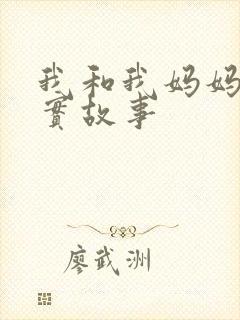 我和我妈妈
實故事
廖武洲